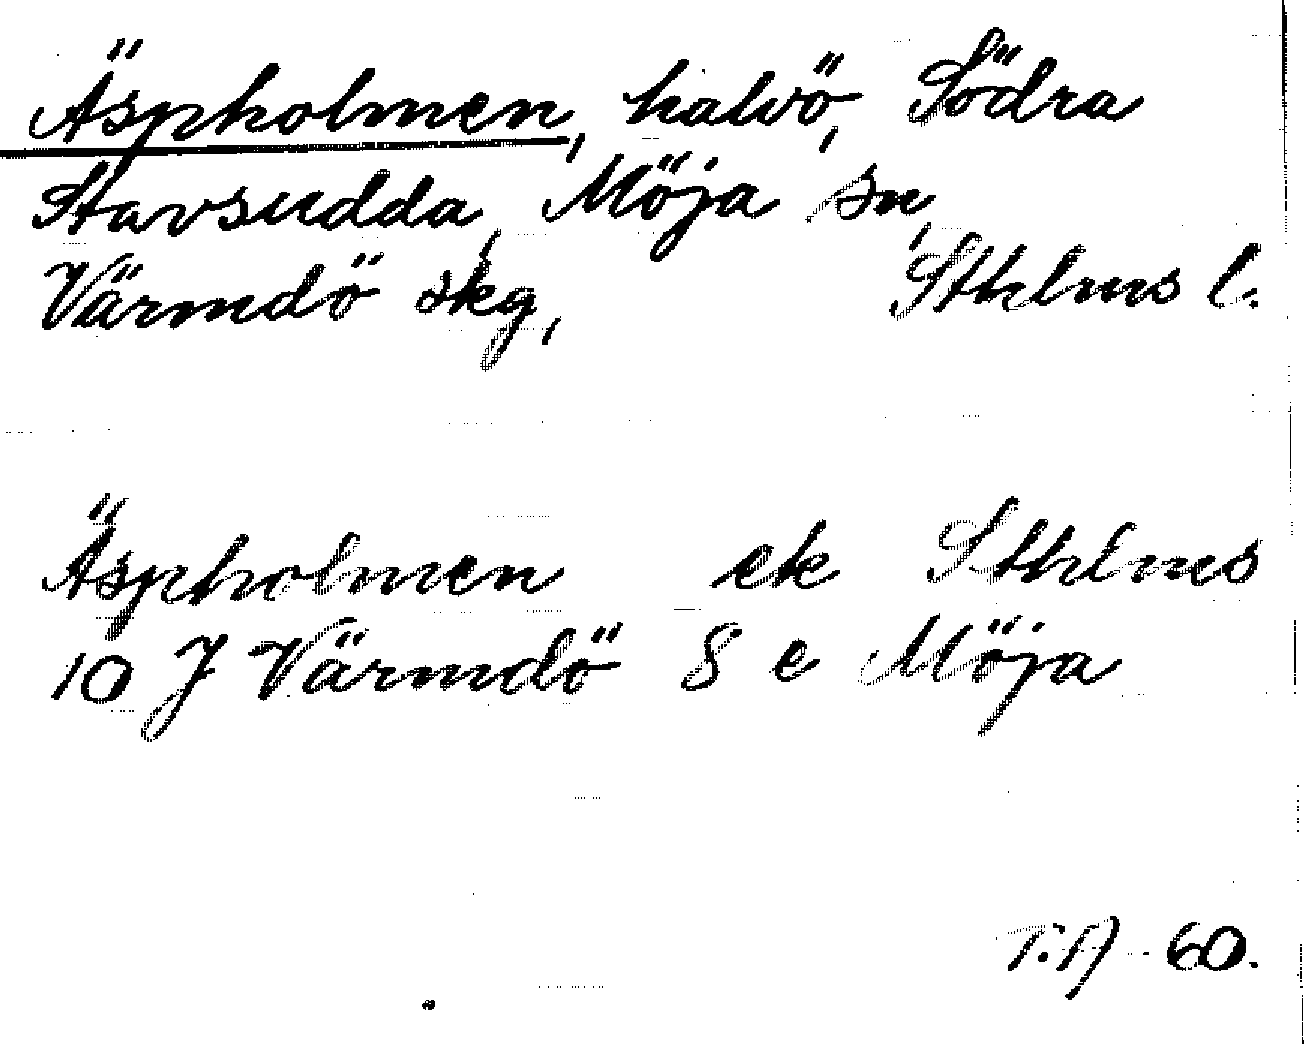 Äspholmen, halvö, Södra
Stavsudda, Möja sn,
Värmdö skg, Sthlms l.
Äspholmen ek Sthlms
10 J Värmdö 8 e Möja
T.A) 60.